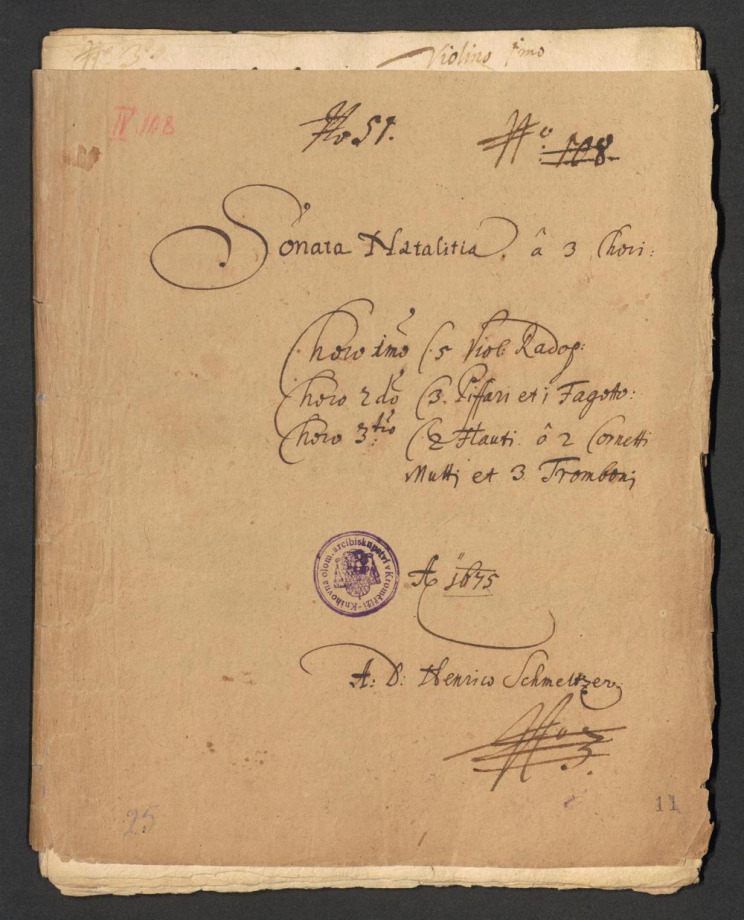 Violino 1mo
IV. 108
No 51.
No. 108.
Sonata Natalitia. â 3 Chori:
Choro 1mo (5 Viol: Radop:
Choro 2do (3. Piffari et i Fagoto:
Choro 3.tio (2 Flauti. ô 2 Cornetti
Mutti et 3 Tromboni
Knihovna olom. arcibiskupství v Kroměříži
A 1675
A: D: Henrico Schmeltzer
No 3.
25
11